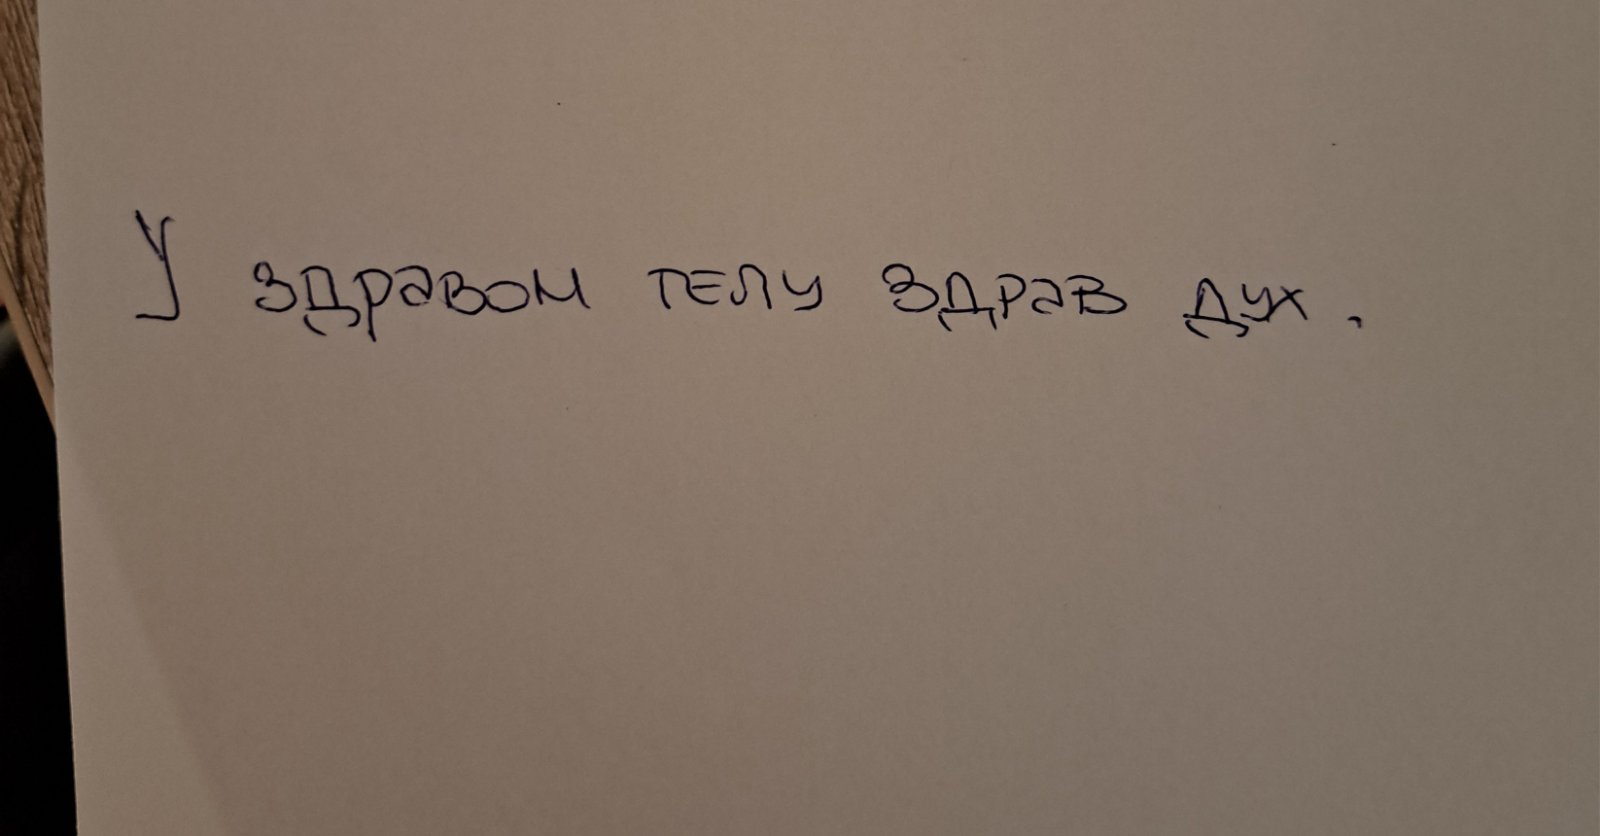 У здравом телу здрав дух.